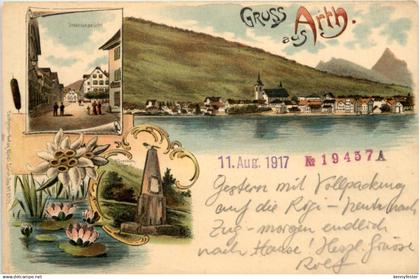 Strassenansicht
Gruss
aus
Arth.
11. Aug. 1917 № 19437A
Gestern mit Vollpackung
auf die Rigi - heute nach
Zug - morgen endlich
nach Hause! Herzl. Grüsse
Rolf
bennyfester